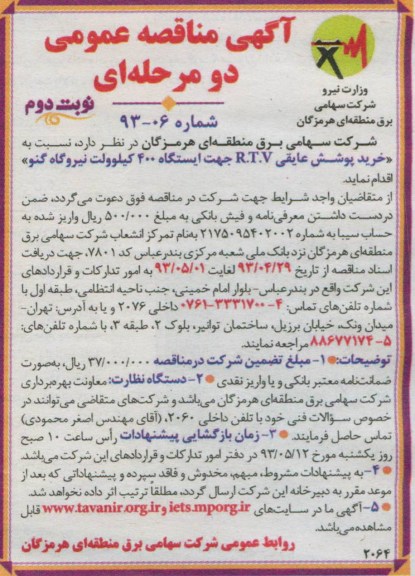 آگهی مناقصه عمومی
دو مرحله‌ای
وزارت نیرو
شرکت سهامی
برق منطقه‌ای هرمزگان
نوبت دوم
شماره ۰۶-۹۳
شرکت سهامی برق منطقه‌ای هرمزگان در نظر دارد، نسبت به
«خرید پوشش عایقی R.T.V جهت ایستگاه ۴۰۰ کیلوولت نیروگاه گنو»
اقدام نماید.
از متقاضیان واجد شرایط جهت شرکت در مناقصه فوق دعوت می‌گردد، ضمن
دردست داشتن معرفی‌نامه و فیش بانکی به مبلغ ۵۰۰/۰۰۰ ریال واریز شده به
حساب سیبا به شماره ۲۱۷۵۰۹۵۴۰۲۰۰۲ به‌نام تمرکز انشعاب شرکت سهامی برق
منطقه‌ای هرمزگان نزد بانک ملی شعبه مرکزی بندرعباس کد ۷۸۰۱، جهت دریافت
اسناد مناقصه از تاریخ ۹۳/۰۴/۲۹ لغایت ۹۳/۰۵/۰۱ به امور تدارکات و قراردادهای
این شرکت واقع در بندرعباس- بلوار امام خمینی، جنب ناحیه انتظامی، طبقه اول با
شماره تلفن‌های تماس: ۴-۳۳۳۱۷۰۰-۰۷۶۱ داخلی ۲۰۷۶ و یا به آدرس: تهران-
میدان ونک، خیابان برزیل، ساختمان توانیر، بلوک ۲، طبقه ۳، با شماره تلفن‌های:
۵-۸۸۶۷۷۱۷۴ مراجعه نمایند.
توضیحات: ۱- مبلغ تضمین شرکت درمناقصه ۳۷/۰۰۰/۰۰۰ ریال، به‌صورت
ضمانت‌نامه معتبر بانکی و یا واریز نقدی ۲- دستگاه نظارت: معاونت بهره‌برداری
شرکت سهامی برق منطقه‌ای هرمزگان می‌باشد و شرکت‌های متقاضی می‌توانند در
خصوص سؤالات فنی خود با تلفن داخلی ۲۰۶۰، (آقای مهندس اصغر محمودی)
تماس حاصل فرمایند ۳- زمان بازگشایی پیشنهادات رأس ساعت ۱۰ صبح
روز یکشنبه مورخ ۹۳/۰۵/۱۲ در دفتر امور تدارکات و قراردادهای این شرکت می‌باشد.
۴- به پیشنهادات مشروط، مبهم، مخدوش و فاقد سپرده و پیشنهاداتی که بعد از
موعد مقرر به دبیرخانه این شرکت ارسال گردد، مطلقاً ترتیب اثر داده نخواهد شد.
۵- آگهی ما در سایت‌های iets.mporg.ir و www.tavanir.org.ir قابل
مشاهده می‌باشد.
روابط عمومی شرکت سهامی برق منطقه‌ای هرمزگان
۲۰۶۴